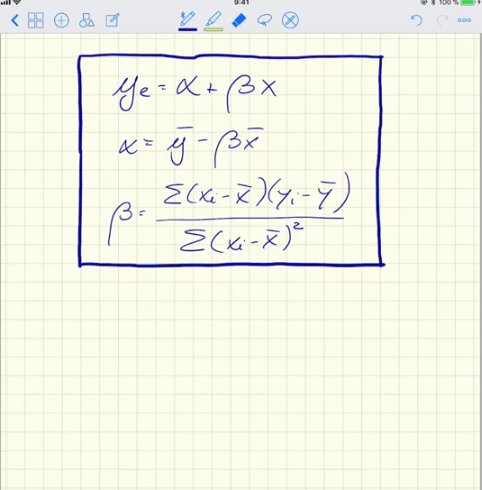 9:41
100 %
yₑ = α + βx
α = ȳ - βx̄
β = Σ(xᵢ - x̄)(yᵢ - ȳ) / Σ(xᵢ - x̄)²